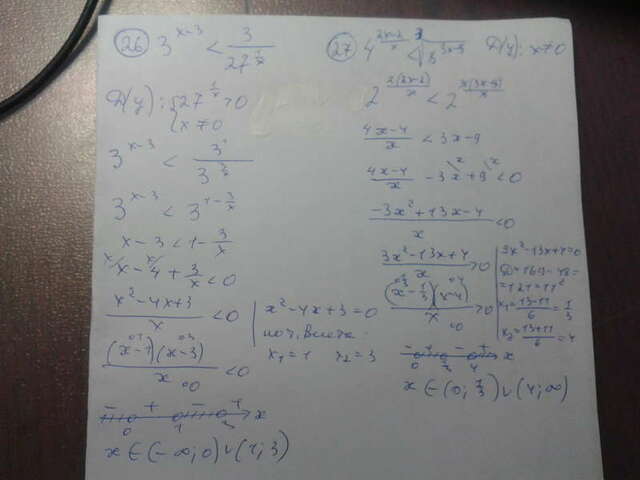 26 3^(x-3) < 3/27^(1/x)
D(y): {27^(1/x) > 0
x ≠ 0
3^(x-3) < 3^1/3^(3/x)
3^(x-3) < 3^(1-3/x)
x-3 < 1-3/x
x - 4 + 3/x < 0
(x²-4x+3)/x < 0
x²-4x+3=0
по т. Виета
x₁=1 x₂=3
(x-1)(x-3)/x < 0
- + - +
0 1 3 x
x ∈ (-∞; 0) ∪ (1; 3)
27 D(y): x ≠ 0
(4x-4)/x < 3x-9
(4x-4)/x - 3x + 9 < 0
(-3x²+13x-4)/x < 0
(3x²-13x+4)/x > 0
3x²-13x+4=0
D=169-48=
=121=11²
x₁=(13-11)/6=1/3
x₂=(13+11)/6=4
(x-1/3)(x-4)/x > 0
- + - + x
0 1/3 4
x ∈ (0; 1/3) ∪ (4; ∞)